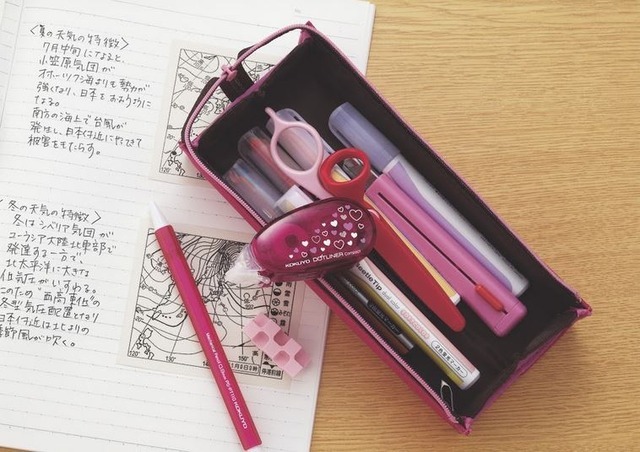 〈夏の天気の特徴〉
7月中旬になると、
小笠原気団が
オホーツク海よりも勢力が
強くなり、日本をおおうように
なる。
南方の海上で台風が
発生し、日本付近にやってきて
被害をもたらす。
冬の天気の特徴〉
冬はシベリア気団が
ユーラシア大陸北東部で
発達する一方で、
北太平洋に大きな
低気圧がいすわる。
このため"西高東低"の
冬型気圧配置となり
日本付近は北よりの
季節風が吹く。
120°
150°
120°
130°
140°
150°
KOKUYO DOTLINER COMPACT
BeetleTip dual color
2色蛍光マーカー
KOKUYO